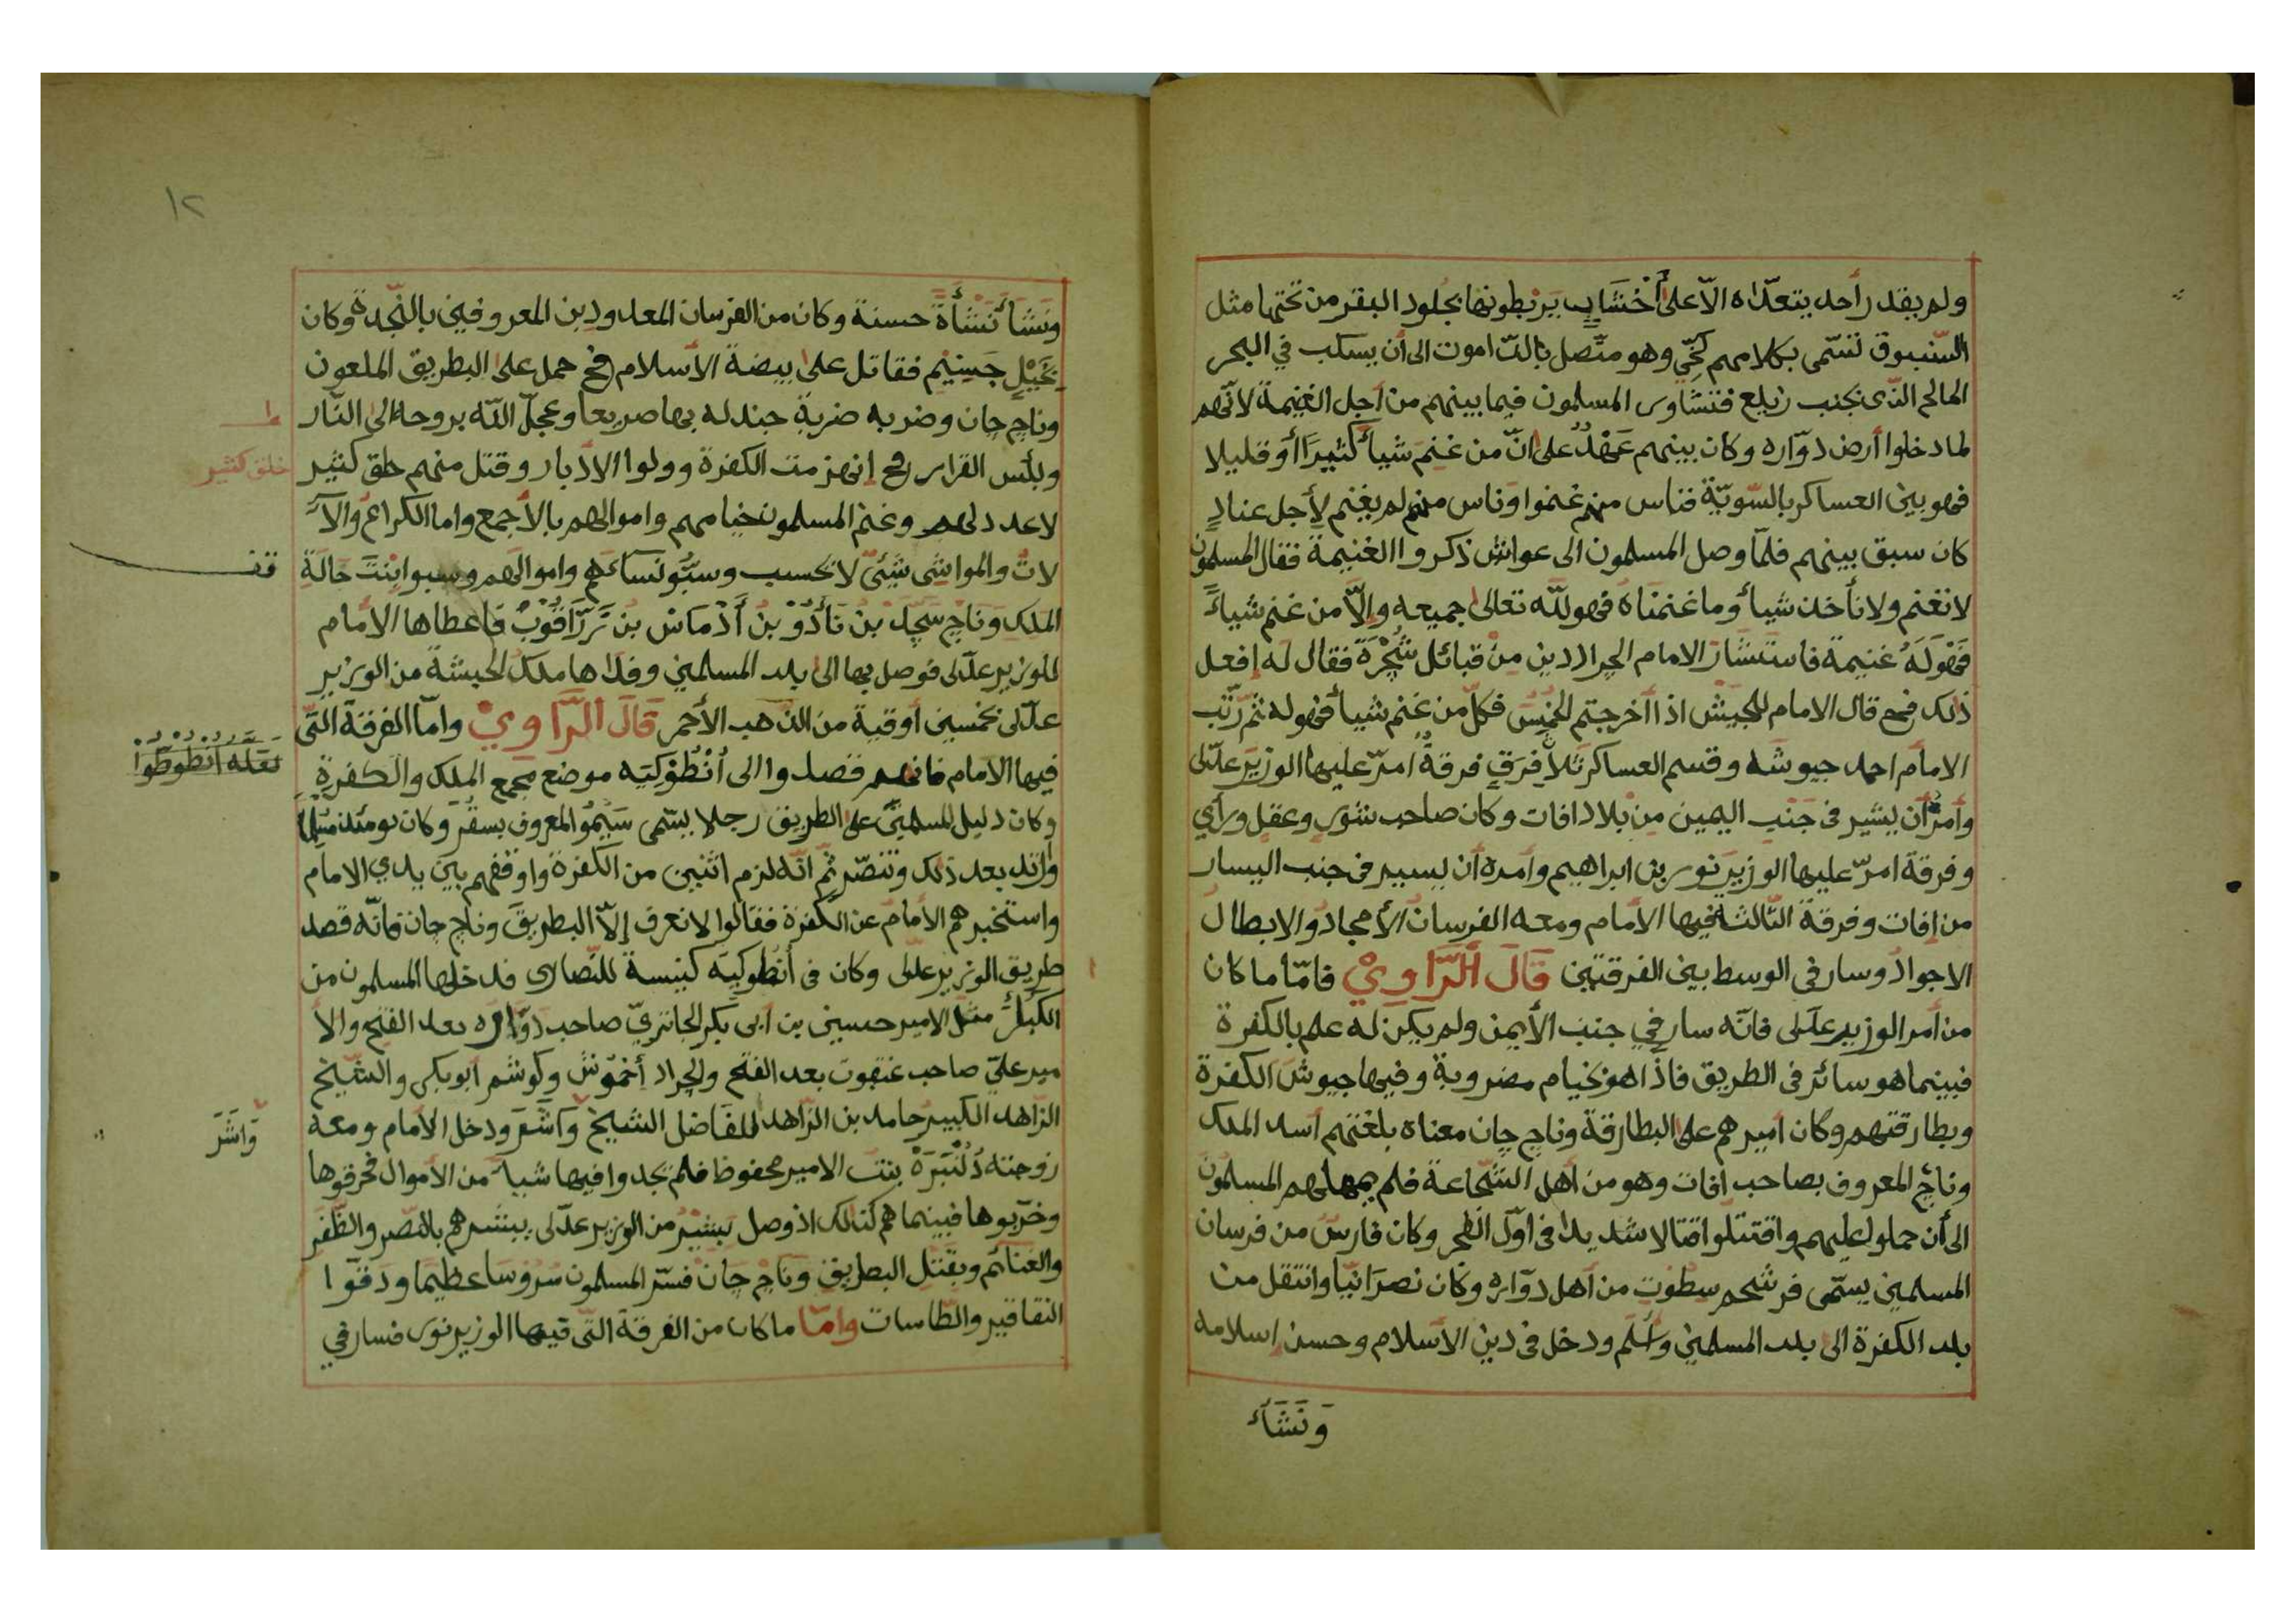 ولم يقدر أحد يتعدّاه الاّ على أخْشَابٍ يَرْبطونها بجُلود البقر من تحتها مثل
السّنبوق تسّمى بكلامهم كخّي وهو متّصل بالدّاموت الى أن يسكب في البحر
المالح الذّى بجنب زيلع فتشاوى المسلمون فيما بينهم من أجل الغنيمة لانّهم
لما دخلوا أرض دوّاره وكان بينهم عَهْدٌ على انّ من غنم شيأ كثيرًا أو قليلا
فهو بين العساكر بالسّويّة فناس منهم غنموا وناس منهم لم يغنم لأجل عنادٍ
كان سبق بينهم فلمّا وصل المسلمون الى عواش ذكروا الغنيمة فقال المسلمون
لا نغنم ولا نأخذ شيأ وما غنمناه فهو للّه تعالى جميعه والاّ من غنم شياءً
فَهْوَلَهُ غنيمة فاستشار الامام الجراد دين من قبائل شُجْرَة فقال له إفعل
ذلك فمع قال الامام للجيش اذا أخرجتم الخُمس فكلّ من غنم شيأ فهو له ثم رتّب
الامام احمد جيوشه وقسم العساكر ثلاً فِرَقٍ فرقةٌ امرّ عليها الوزير عدّلى
وأمرّ أن يشير فى جَنْبِ اليمين مِنْ بلاد افات وكان صاحب شورٍ وعقلٍ ورأي
وفرقة امرّ عليها الوزير نور بن ابراهيم وأمره أن يسير فى جنب اليسار
من إفات وفرقة الثّالثة فيها الأمام ومعه الفرسان الأمجادُ والابطال
الاجوادُ وسار فى الوسط بين الفرقتين قَالَ الرَّاوِيْ فامّا ما كان
من أمر الوزير عدلى فانّه سار في جنب الأيمن ولم يكن له علم بالكفرة
فبينما هو سائر فى الطريق فاذا هو بخيام مضروبة وفيها جيوش الكفرة
وبطارقتهم وكان أميرهم على البطارقة وناج جان معناه بلغتهم أسد الملك
وناج المعروف بصاحب افات وهو من أهل الشّجاعة فلم يمهلهم المسلمون
الى أن حملوا عليهم واقتتلوا قتالا شديدا فى اوّل الفجر وكان فارسٌ من فرسان
المسلمين يسمّى فرشحم سطوت من أهل دوّاره وكان نصرَانيّا وانتقل من
بلد الكفرة الى بلد المسلمين وأسلم ودخل فى دين الأسلام وحسن اسلامه
وَنَشَأَ
١٢
ونَشَأ نَشْأةً حسنة وكان من الفرسان المعدودين المعروفين بالنّجدة وكان
بخَيْلٍ جَسِيْمٍ فقاتل على بيضة الأسلام فح حمل على البطريق الملعون
وناج جان وضربه ضربة جندله بها صريعا وعجلّ اللّه بروحه الى النّار
وبئس القرار فح إنهزمت الكفرة وولوا الادبار وقتل منهم خلق كثير
خلق كثير
لا عدد لهم وغنم المسلمون خيامهم واموالهم بالأجمع واما الكراع والآ
لاتُ والمواشى شيئيّ لا تحسب وسبُّو نساءهم واموالهم وسبوا بِنْتَ خالة
قف
الملك وناج سَجَد بن نَأدُوْ بن أَدْمَاس بن تَرزَاقُوْبٌ فاعطاها الأمام
للوزير عدّلى فوصل بها الى بلد المسلمين وفداها ملك الحبشة من الوزير
عدّلى بخمسين أوقية من الذّهب الأحمر قَالَ الرَّاوِيْ وامّا الفرقة التّى
فيها الامام فانهم قصدوا الى أَنْطُوْكِيَه موضع مجمع الملك والكفرة
نقله انطوطوا
وكان دليل المسلمين على الطريق رجلا يسّمى سَيْمُو المعروف بسقر وكان يومئذ مسلما
وارتد بعد ذلك وتنصّر ثمّ انّه لزم اثنين من الكفرة واوقفهم بين يدي الامام
واستخبرهم الأمام عن الكفرة فقالوا لا نعرف إلاّ البطريق وناج جان فانّه قصد
طريق الوزير عدلى وكان فى أنطوكيَه كنيسة للنّصارى فدخلها المسلمون من
الكبار مثل الامير حسين بن أبى بكر الجاتريّ صاحب دوّاره بعد الفتح والأ
مير عليّ صاحب عنقوت بعد الفتح والجراد أحمُوش وكوشم أبوبكر والشّيخ
الزّاهد الكبير حامد بن الزّاهد الفاضل الشيخ وَاشَعَر ودخل الأمام ومعه
وَاشَرَ
زوجته دُلْنْبَرَهْ بنت الامير محفوظ فلم يجدوا فيها شيأ من الأموال فحرقوها
وخرّبوها فبينما هم كذلك اذ وصل بَشيرٌ من الوزير عدّلى يبشرهم بالنّصر والظّفر
والغنائم وبقتل البطريق وناج جان فسّر المسلمون سُرُوسا عظيما ودقوّا
النقاقير والطّاسات وامّا ما كان من الفرقة التّى فيها الوزير نور فسار في